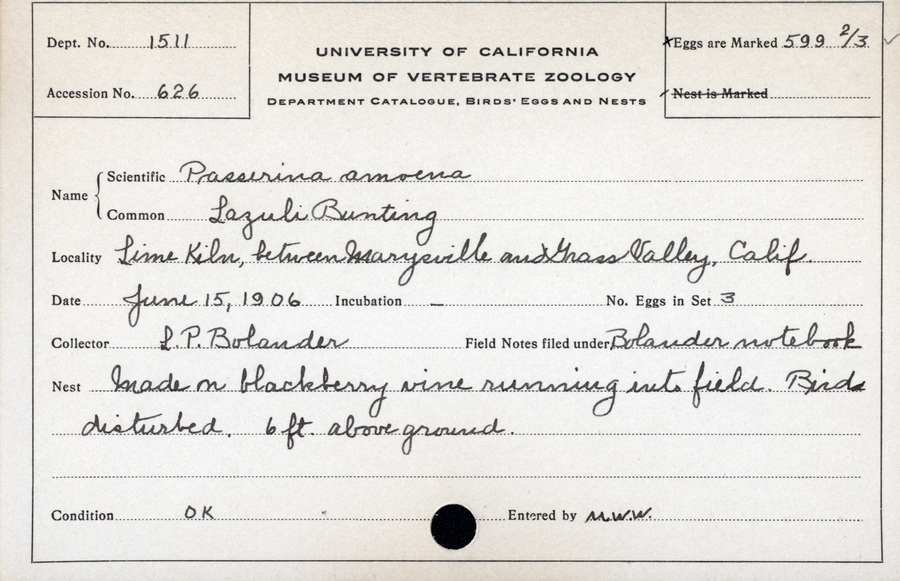 Dept. No. 1511
Accession No. 626
UNIVERSITY OF CALIFORNIA
MUSEUM OF VERTEBRATE ZOOLOGY
DEPARTMENT CATALOGUE, BIRDS' EGGS AND NESTS
Eggs are Marked 599 2/3
Nest is Marked
Name
Scientific Passerina amoena
Common Lazuli Bunting
Locality Lime Kiln, between Marysville and Grass Valley, Calif.
Date June 15, 1906 Incubation — No. Eggs in Set 3
Collector L. P. Bolander Field Notes filed under Bolander notebook
Nest Made n blackberry vine running into field. Birds
disturbed. 6 ft. above ground.
Condition OK Entered by M.W.W.